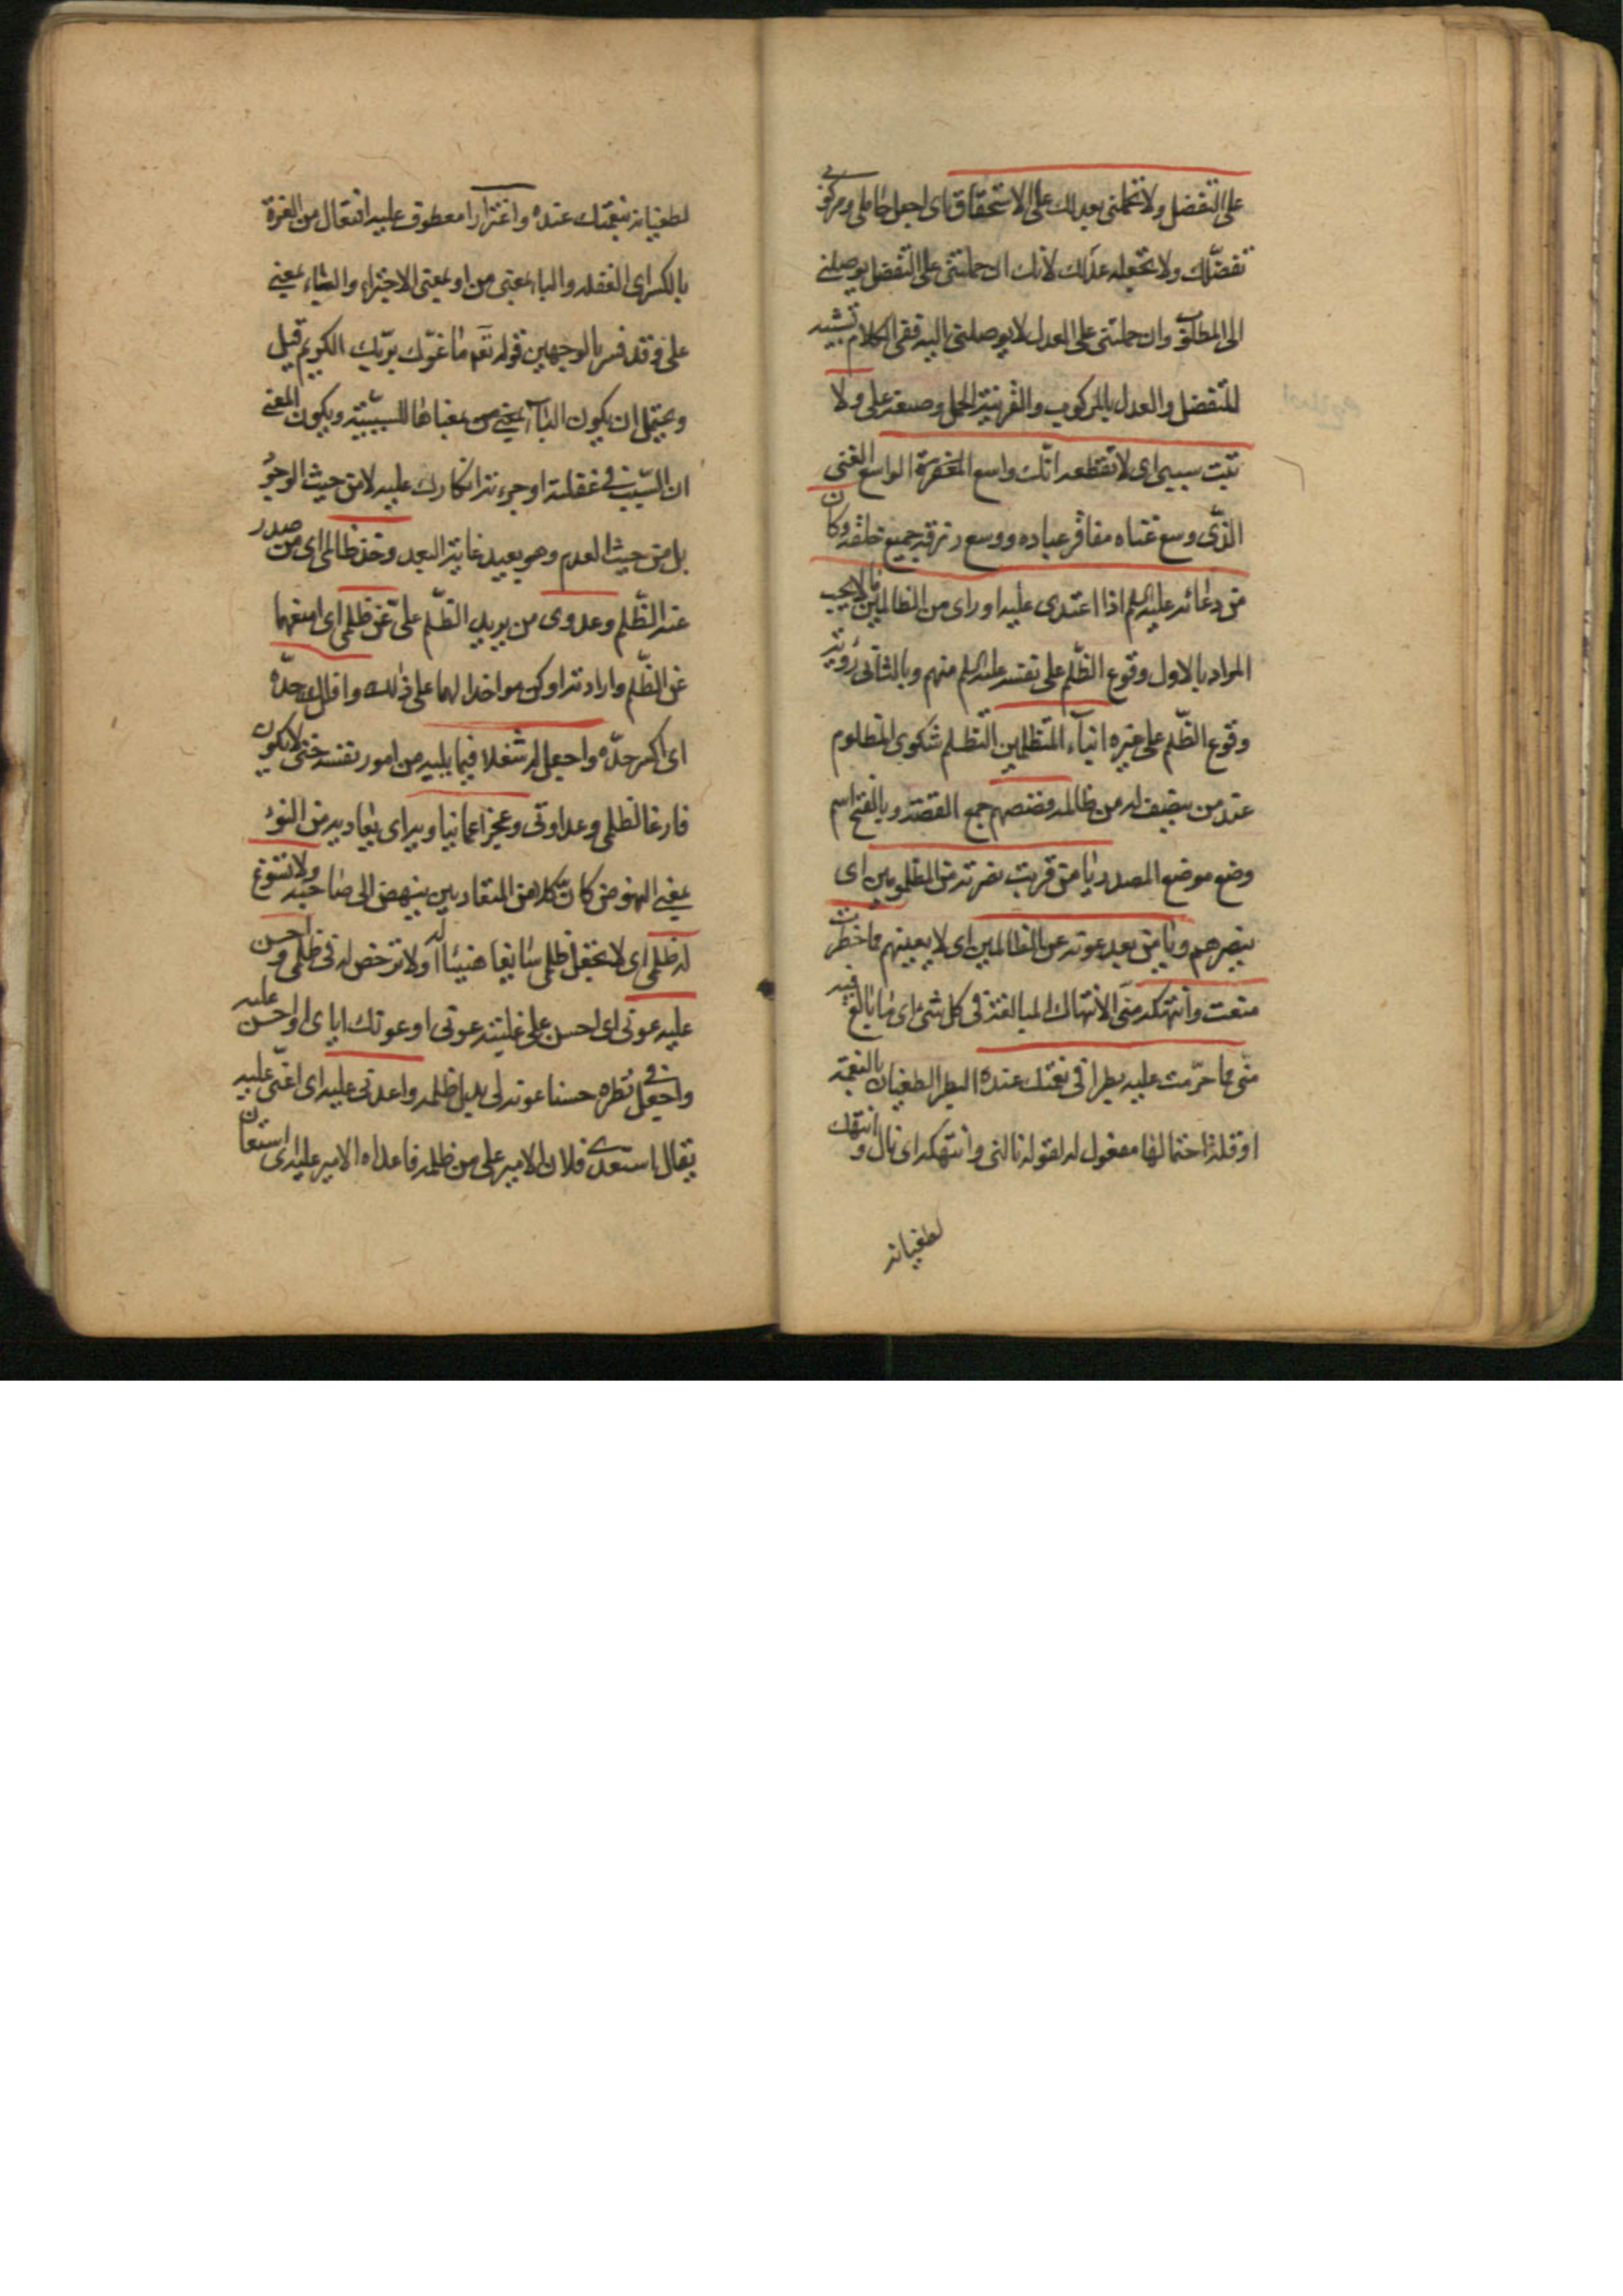 على التفضل ولا تحملني بعدلك على الاستحقاق اى اجعل حاملى ومركوبى
تفضلك ولا تجعله عدلك لانك ان حملتنى على التفضل يوصلنى
الى المطلوب وان حملتنى على العدل لا يوصلنى اليه ففى الكلام تشبيه
للتفضل والعدل بالمركوب والقرينة الحمل وصيغة على ولا
تبت سببى اى لا تقطعه انك واسع المغفرة الواسع الغنى
الذى وسع غناه مفاقر عباده ووسع رزقه جميع خلقه وكان
من دعائه عليه السلم اذا اعتدى عليه او راى من الظالمين ما لا يحب
المراد بالاول وقوع الظلم على نفسه عليه السلم منهم وبالثانى رؤيته
وقوع الظلم على غيره انباء المتظلمين التظلم شكوى المظلوم
عند من ينصف له من ظالمه وقصصهم جمع القصة وبالفتح اسم
وضع موضع المصدر يا من قربت نصرته من المظلومين اى
ينصرهم ويا من بعد عونه عن الظالمين اى لا يعينهم مما حظرت
منعت وانتهكه منى الانتهاك المبالغة فى كل شئ اى ما بالغ فيه
منى مما حرمت عليه بطرا فى نعمتك عنده البطر الطغيان بالنعمة
او قلة احتمالها مفعول له لقوله نالنى وانتهكه اى نال وانتهك
لطغيانه
لطغيانه بنعمتك عنده واغترارا معطوف عليه افتعال من الغرة
بالكسر اى الغفلة والباء بمعنى من او بمعنى الاجتراء والباء بمعنى
على وقد فسر بالوجهين قوله تعم ما غرك بربك الكريم قيل
ويحتمل ان يكون الباء بمعنى من بمعناها للسببية ويكون المعنى
ان السبب فى غفلته او جرءته انكارك عليه لا من حيث الوجود
بل من حيث العدم وهو بعيد غاية البعد وخذ ظالمى اى من صدر
عنه الظلم وعدوى من يريد الظلم على عن ظلمى اى امنعهما
عن الظلم وارادته او كن مواخذا لهما على ذلك وافلل حده
اى اكسر حده واجعل له شغلا فيما يليه من امور نفسه حتى لا يكون
فارغا لظلمى وعداوتى وعجزا عما يناويه اى يعاديه من النوء
بمعنى النهوض كان كلا من المتعاديين ينهض الى صاحبه ولا تسوغ
له ظلمى اى لا تجعل ظلمى سائغا هنيئا له او لا ترخص له فى ظلمى واحسن
عليه عونى اى احسن على غلبته عونى او عونك اياى او احسن عليه
واجعل فى نظره حسنا عونه لى بديل ظلمه واعدنى عليه اى اعنى عليه
يقال استعدى فلان الامير على من ظلمه فاعداه الامير عليه اى استعان